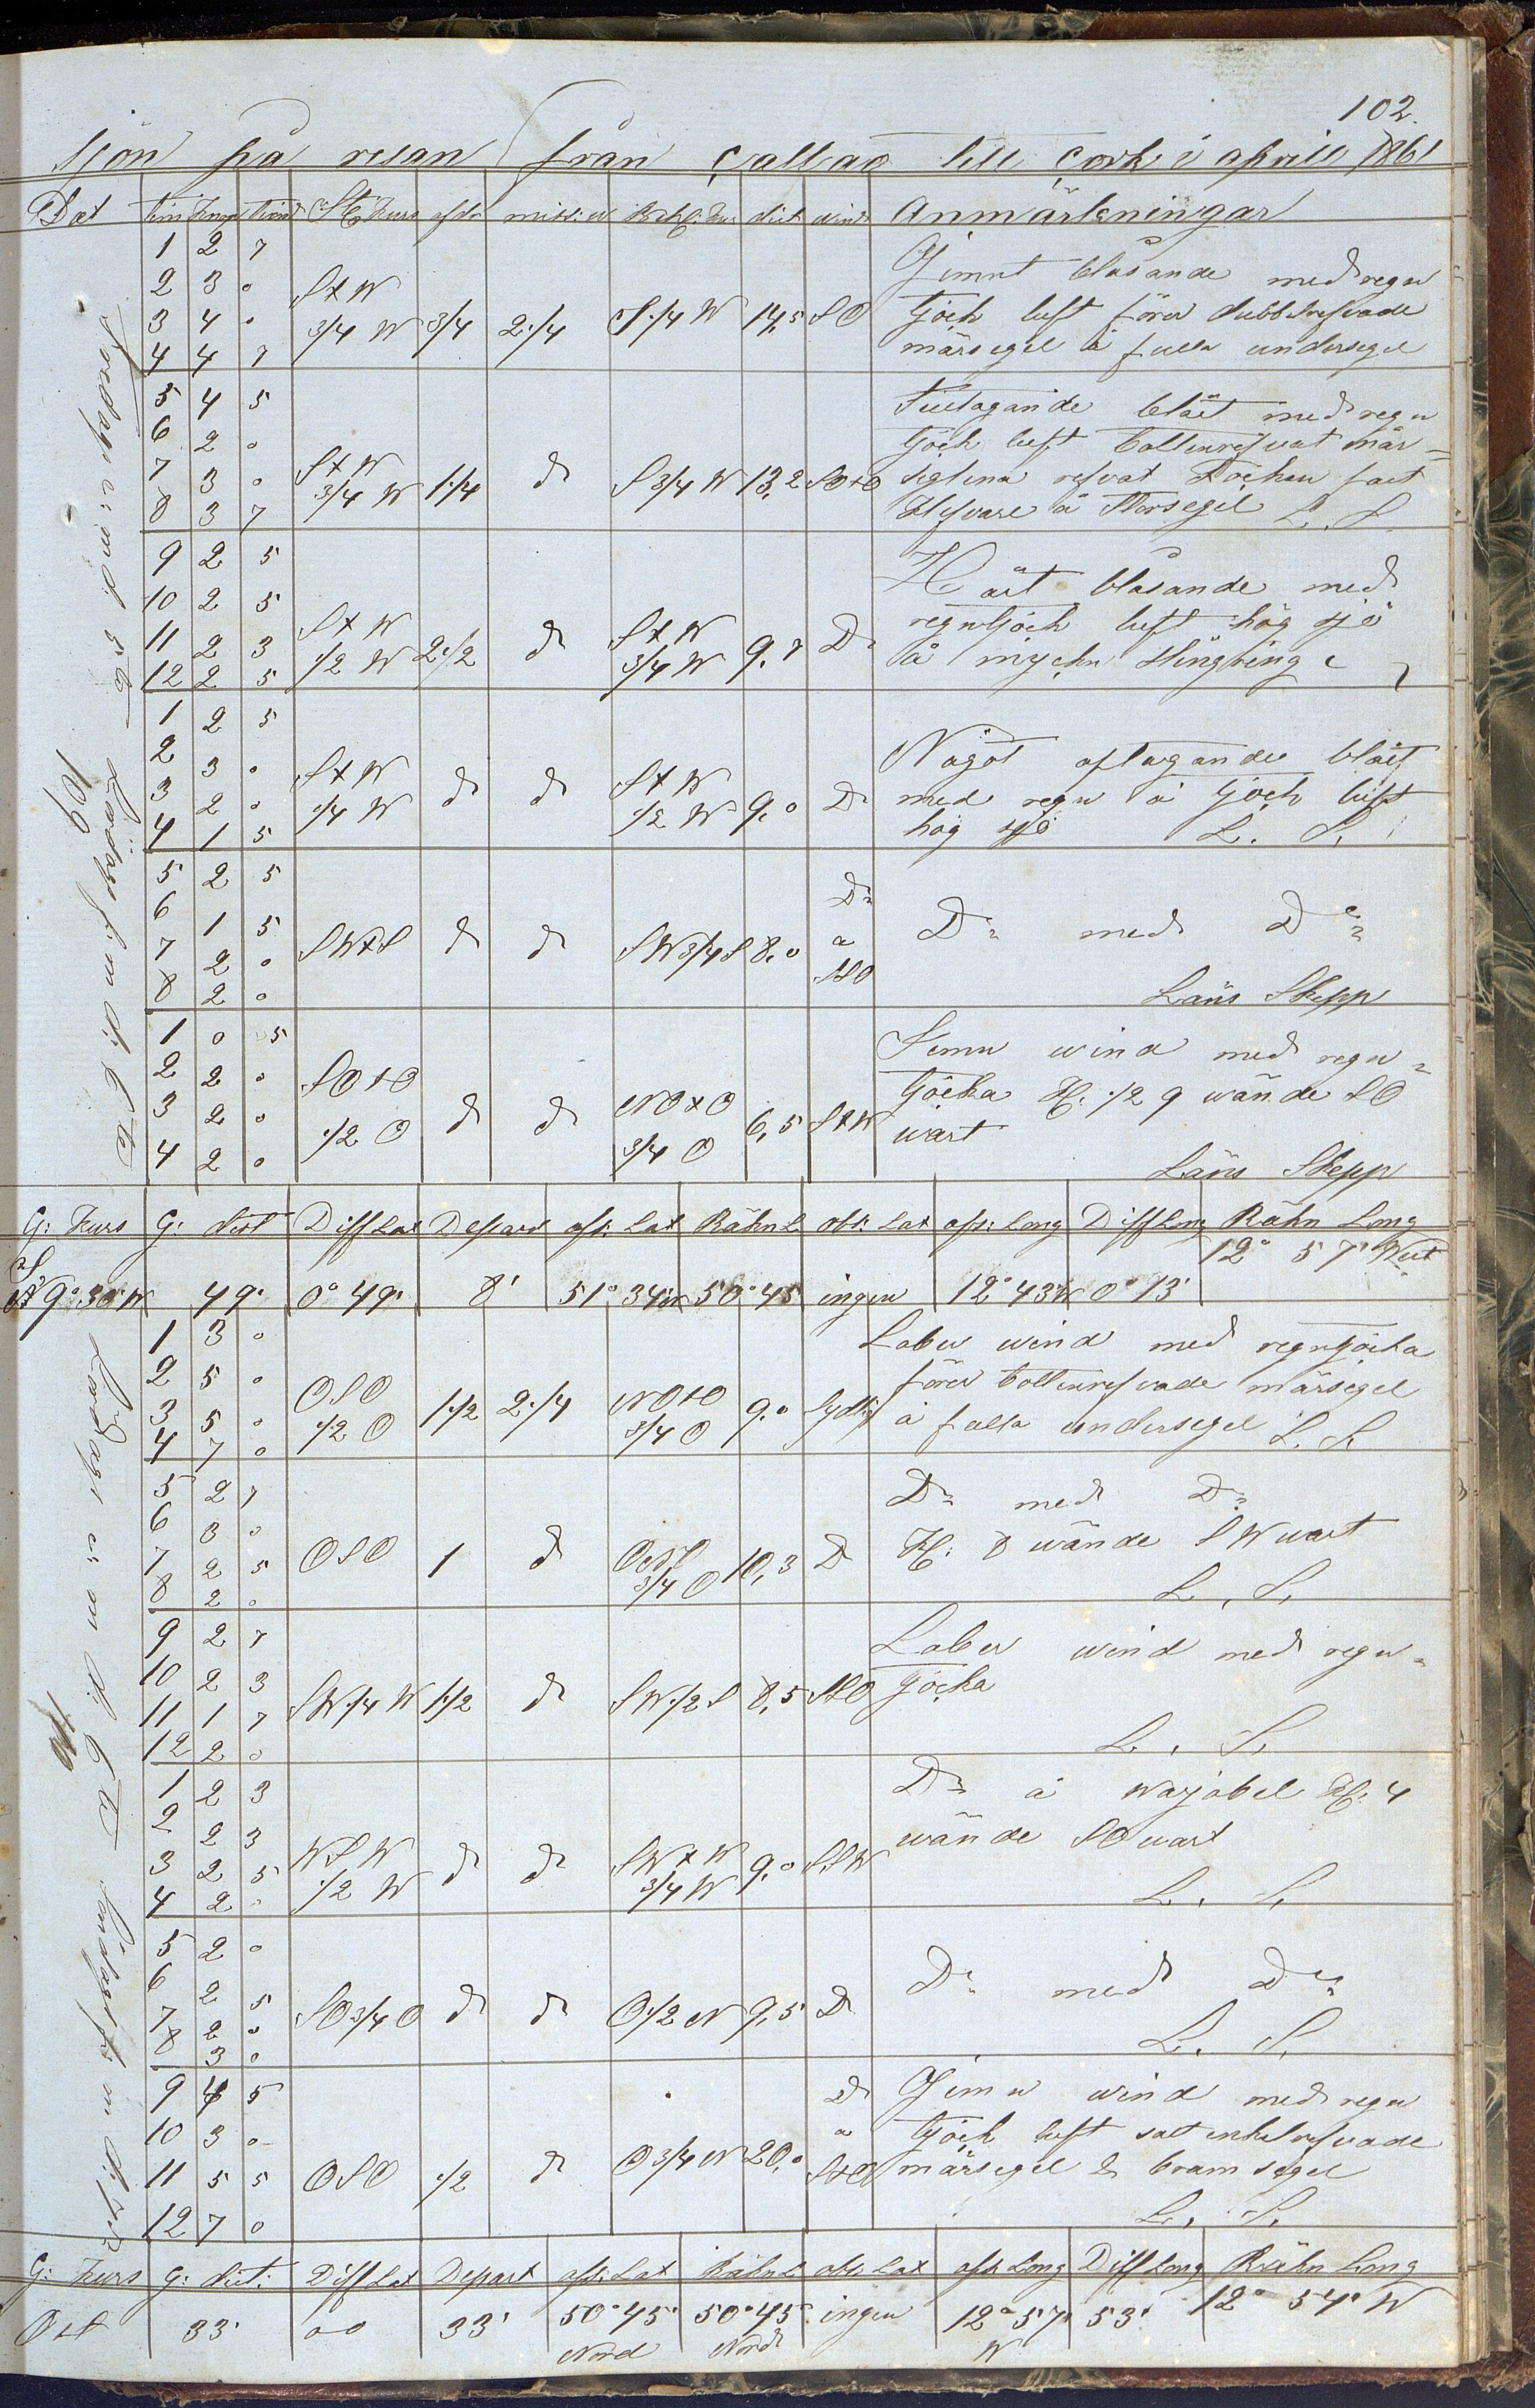 102.
Sjön på resan från Callao till Cork i april 1861
Dat tim knop tiond St: Kurs afdr missv Behl: Ku: dist wind Anmärkningar
1 2 7 Jimnt blåsande med regn
2 3 0 StW tjock luft förer dubbelrefvade
3 4 0 3/4 W 3/4 2 1/4 S 1/4 W 14,5 SO märsegel å fulla undersegel
4 4 7
5 4 5 Tilltagande blåst med regn
6 2 0 tjock luft bottenrefvat mär=
7 3 0 StW 3/4 W 1 1/4 do S 3/4 W 13,2 SOtO seglena refvat Focken fast
8 3 7 Klyvare å Storsegel L. S.
9 2 5 Hårt blåsande med
10 2 5 regntjock luft hög sjö
11 2 3 StW 1/2 W 2 1/2 do StW 3/4 W 9,7 Do å mycken slingring
12 2 5
1 2 5 Något aftagande blåst
2 3 0 StW StW med regn å tjock luft
3 2 0 1/4 W do do 1/2 W 9,0 Do hög sjö L. S.
4 1 5
5 2 5 Do
6 1 5 SWtS do do SW 3/4 S 8,0 a Do med Do
7 2 0 StO
8 2 0 Läns Skepp
1 0 5 Jemn wind med regn=
2 2 0 SOtO NOtO tjocka Kl: 1/2 9 wände SO
3 2 0 1/2 O do do 3/4 O 6,5 StW wart
4 2 0 Läns Skepp
G: Kurs G: dist Diff Lat Depart afs: Lat Räkn L obs: Lat afs: Long Diff Long Räkn Long
S 9° 30' W 49' 0° 49' 8' 51° 34' N 50° 45' ingen 12° 43' W 0° 13' 12° 57' West
1 3 0 Laber wind med regntjocka
2 5 0 OSO NOtO förer bottenrefvade märsegel
3 5 0 1/2 O 1 1/2 2 1/4 3/4 O 9,0 Sydlig å fulla undersegel L. S.
4 7 0
5 2 7 Do med Do
6 3 0 Kl: 8 wände SW wart
7 2 5 OSO 1 do 3/4 O 10,3 Do L. S.
8 2 0
9 2 7 Laber wind med regn=
10 2 3 SW 1/4 W 1 1/2 do SW 1/2 S 8,5 StO tjocka
11 1 7
12 2 0 L. S.
1 2 3 Do å warjabel Kl: 4
2 2 3 WSW SWtW wände SO wart
3 2 5 1/2 W do do 3/4 W 9,0 SSW
4 2 0 L. S.
5 2 0
6 2 5 SO 3/4 O do do O 1/2 N 9,5 Do Do med Do
7 2 0
8 3 0 L. S.
9 4 5 Do Jimn wind med regn
10 3 0 a tjock luft satt enkelrefvade
11 5 5 OSO 1/2 do O 3/4 N 20,0 StO märsegel & bramsegel
12 7 0 L. S.
G: Kurs G: dist: Diff Lat Depart afs: Lat Räkn L obs Lat afs Long Diff Long Räkn Long
Ost 33' 00 33' 50° 45' Nord 50° 45' Nord ingen 12° 57' W 53' 12° 54' W